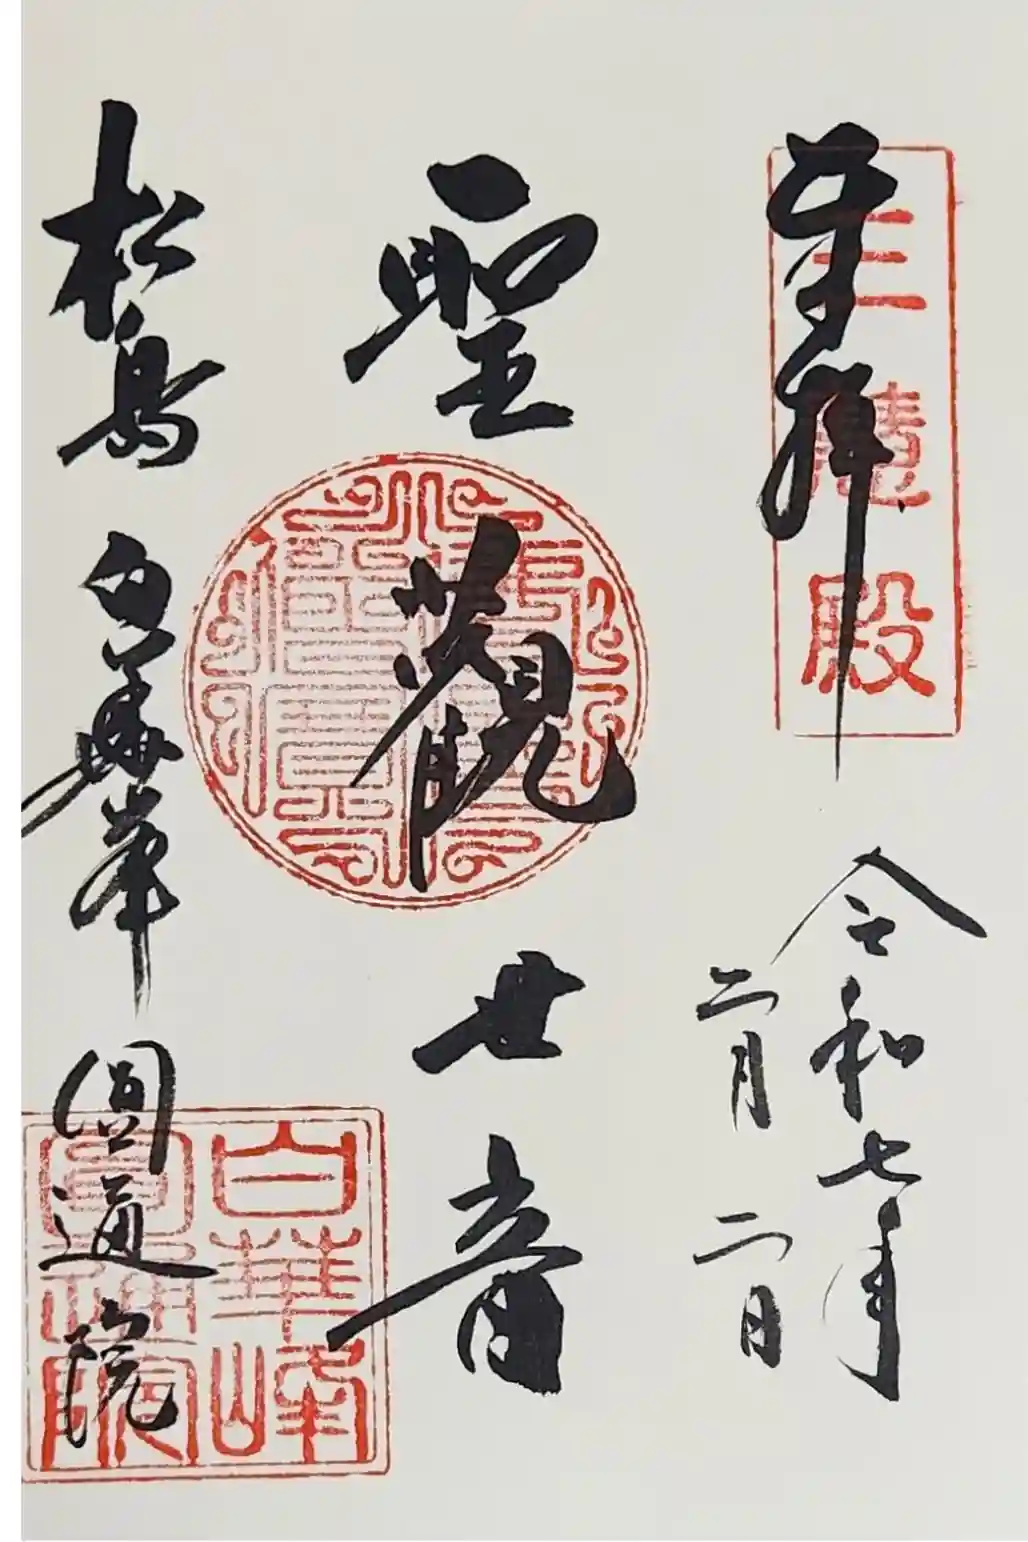 奉拝
三慧殿
令和七年
二月二日
聖観世音
松島 白華峰 圓通院
白華峰
圓通院